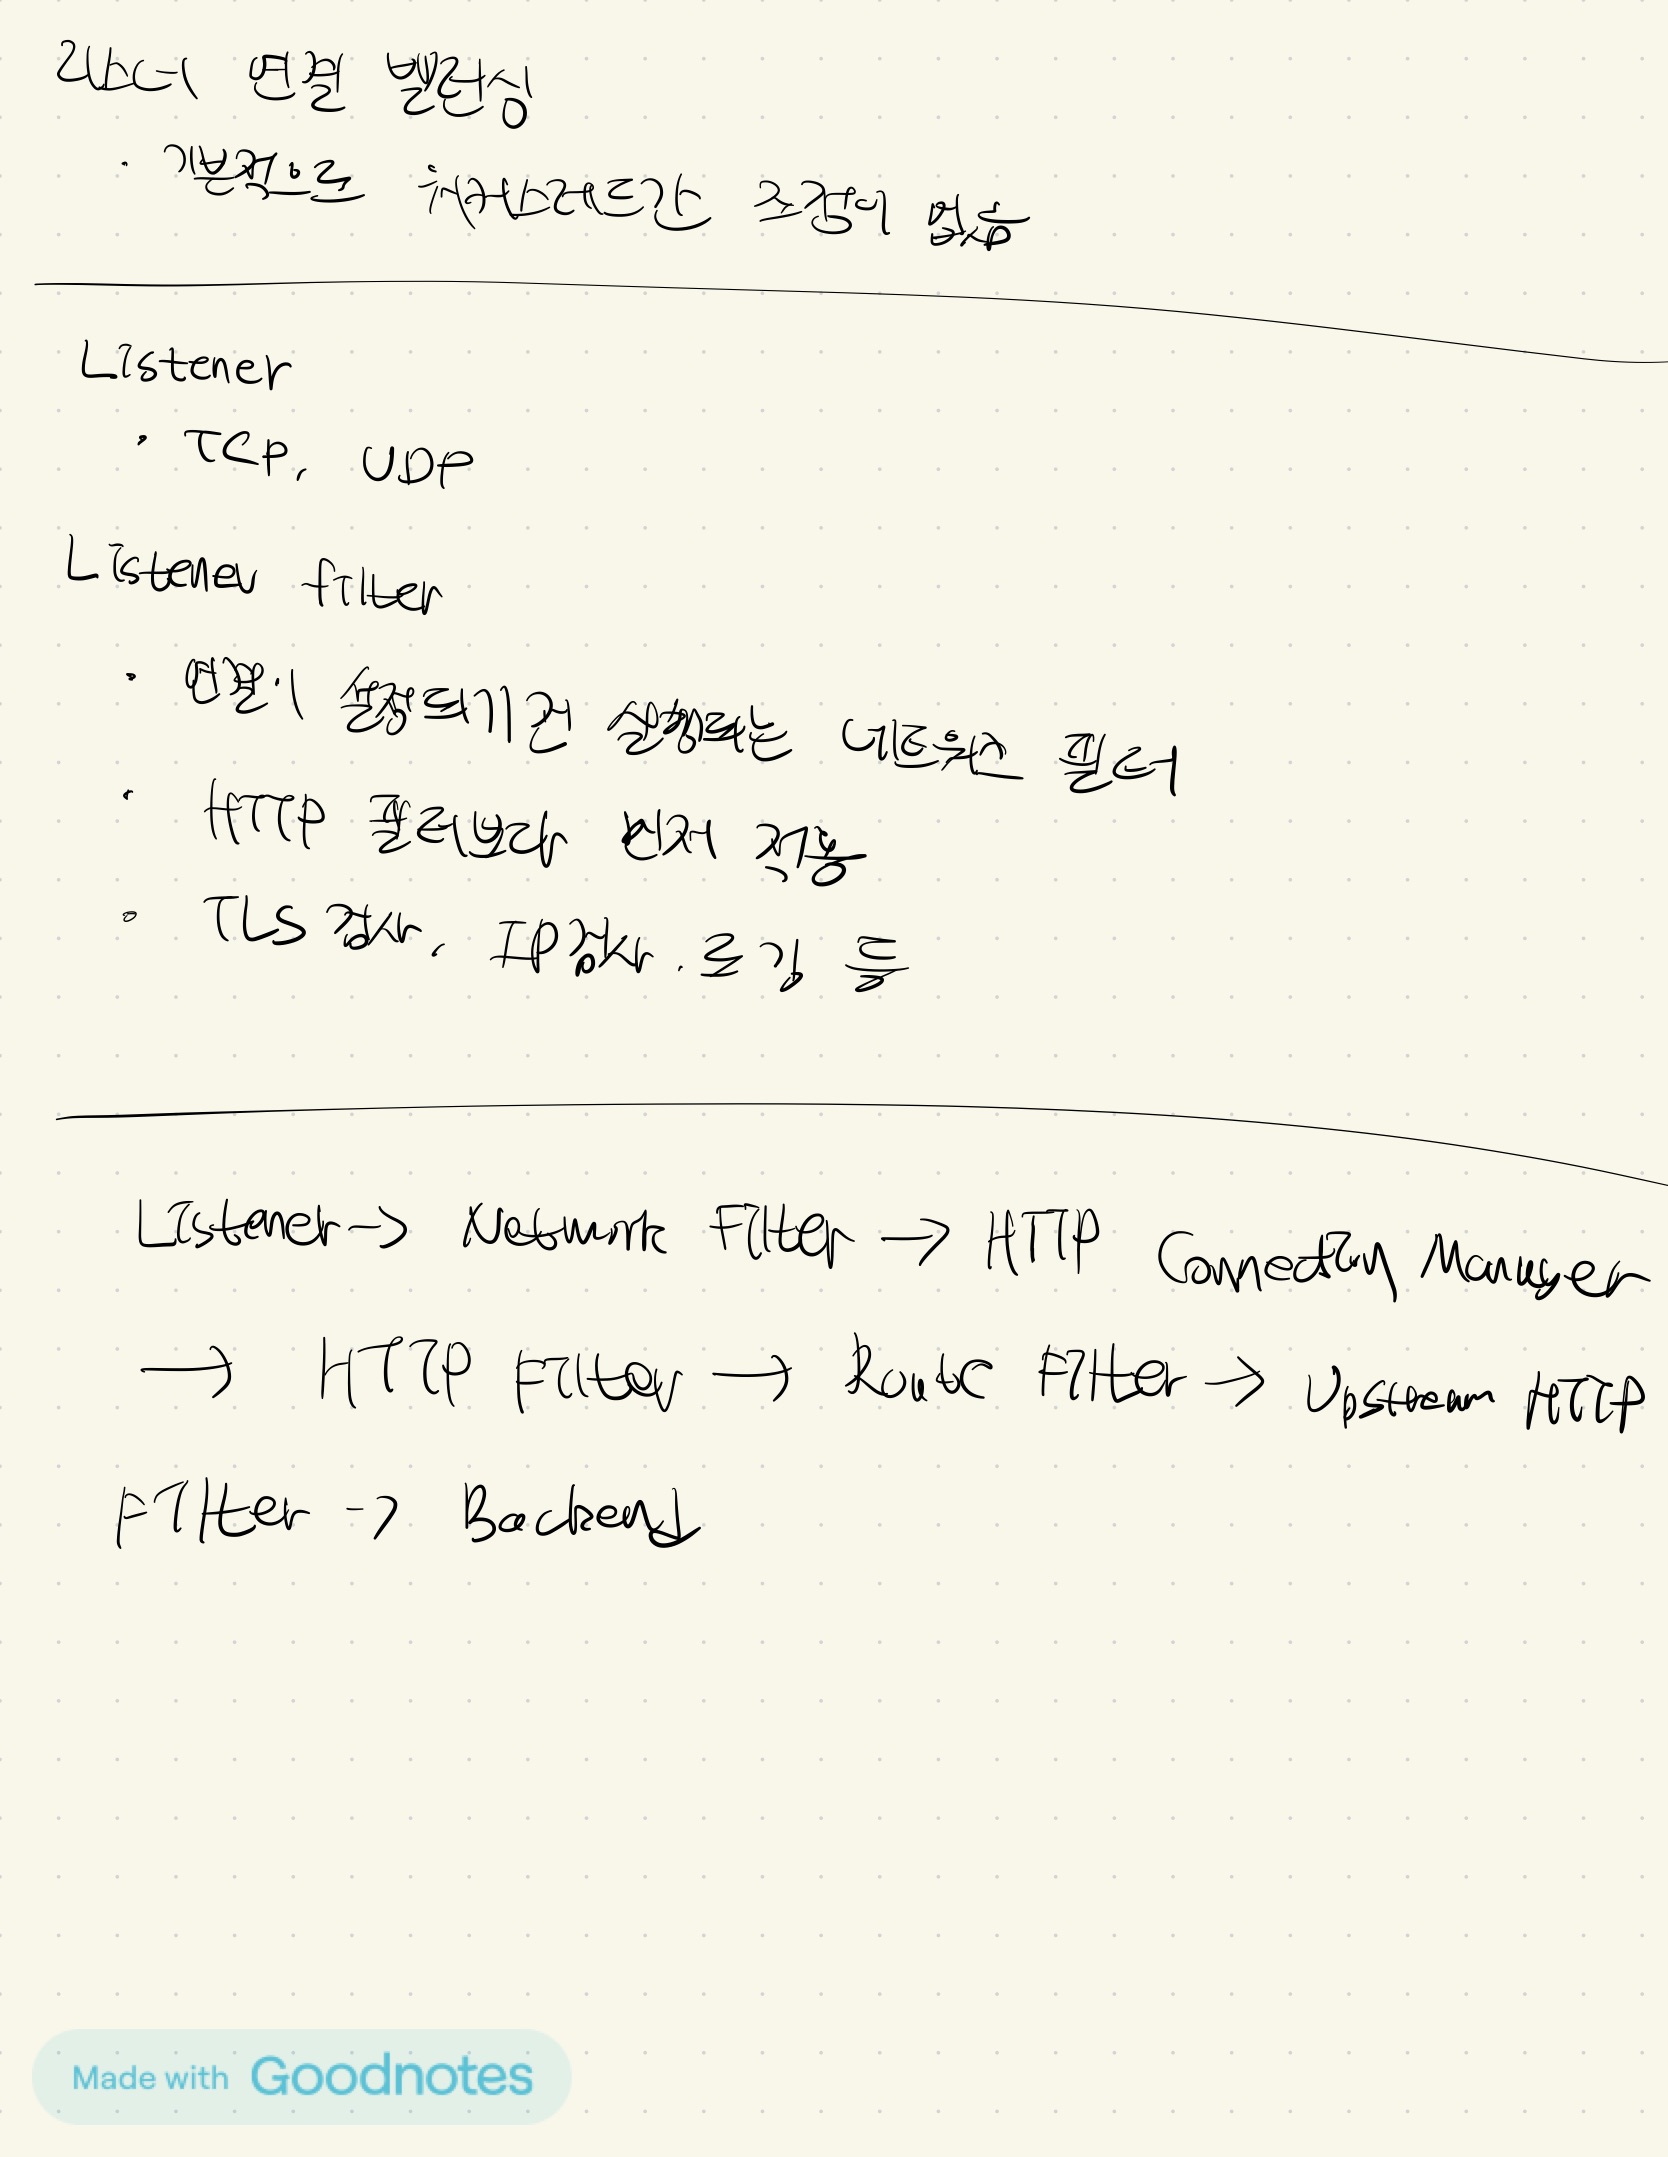 리스너 연결 밸런싱
· 기본적으로 워커스레드간 조정이 없음
Listener
· TCP, UDP
Listener filter
· 연결이 설정되기전 실행되는 네트워크 필터
· HTTP 필터보다 먼저 적용
· TLS 검사, IP검사, 로깅 등
Listener -> Network Filter -> HTTP Connection Manager
-> HTTP Filter -> Route Filter -> Upstream HTTP
Filter -> Backend
Made with Goodnotes